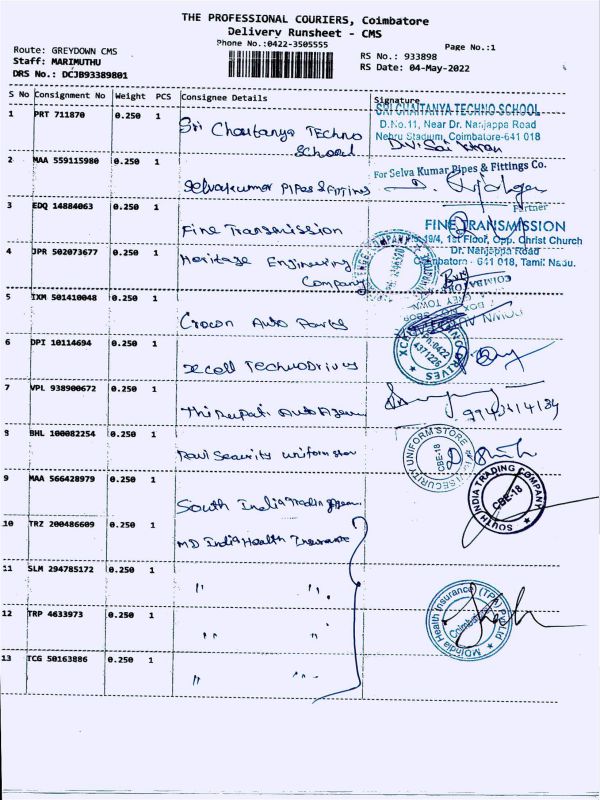 THE PROFESSIONAL COURIERS, Coimbatore
Delivery Runsheet - CMS
Phone No.:0422-3505555
Page No.:1
Route: GREYDOWN CMS
Staff: MARIMUTHU
DRS No.: DCJB93389801
RS No.: 933898
RS Date: 04-May-2022
S No Consignment No Weight PCS Consignee Details Signature
1 PRT 711870 0.250 1 Sri Chaitanya Techno School
SRI CHAITANYA TECHNO SCHOOL
D.No.11, Near Dr. Nanjappa Road
Nehru Stadium, Coimbatore-641 018
2 MAA 559115980 0.250 1 Selvakumar Pipes & Fittings
For Selva Kumar Pipes & Fittings Co.
Partner
3 EDQ 14884063 0.250 1 Fine Transmission
FINE TRANSMISSION
19/4, 1st Floor, Opp. Christ Church
Dr. Nanjappa Road
Coimbatore - 641 018, Tamil Nadu.
4 JPR 502073677 0.250 1 Heritage Engineering Company
5 IXM 501410048 0.250 1 Crown Auto Parts
6 DPI 10114694 0.250 1 Xcell TechnoDrives
Ph:0422
4371226
7 VPL 938900672 0.250 1 Thirupati Auto Agency
8 BHL 100082254 0.250 1 Ravi Security Uniform Store
RAVI SECURITY UNIFORM STORE
CBE-18
9 MAA 566428979 0.250 1 South India Trading
SOUTH INDIA TRADING COMPANY
CBE-18
10 TRZ 200486609 0.250 1 MD India Health Insurance
11 SLM 294785172 0.250 1 " "
12 TRP 4633973 0.250 1 " "
MDIndia Health Insurance (TPA) P Ltd
Coimbatore
13 TCG 50163886 0.250 1 " "